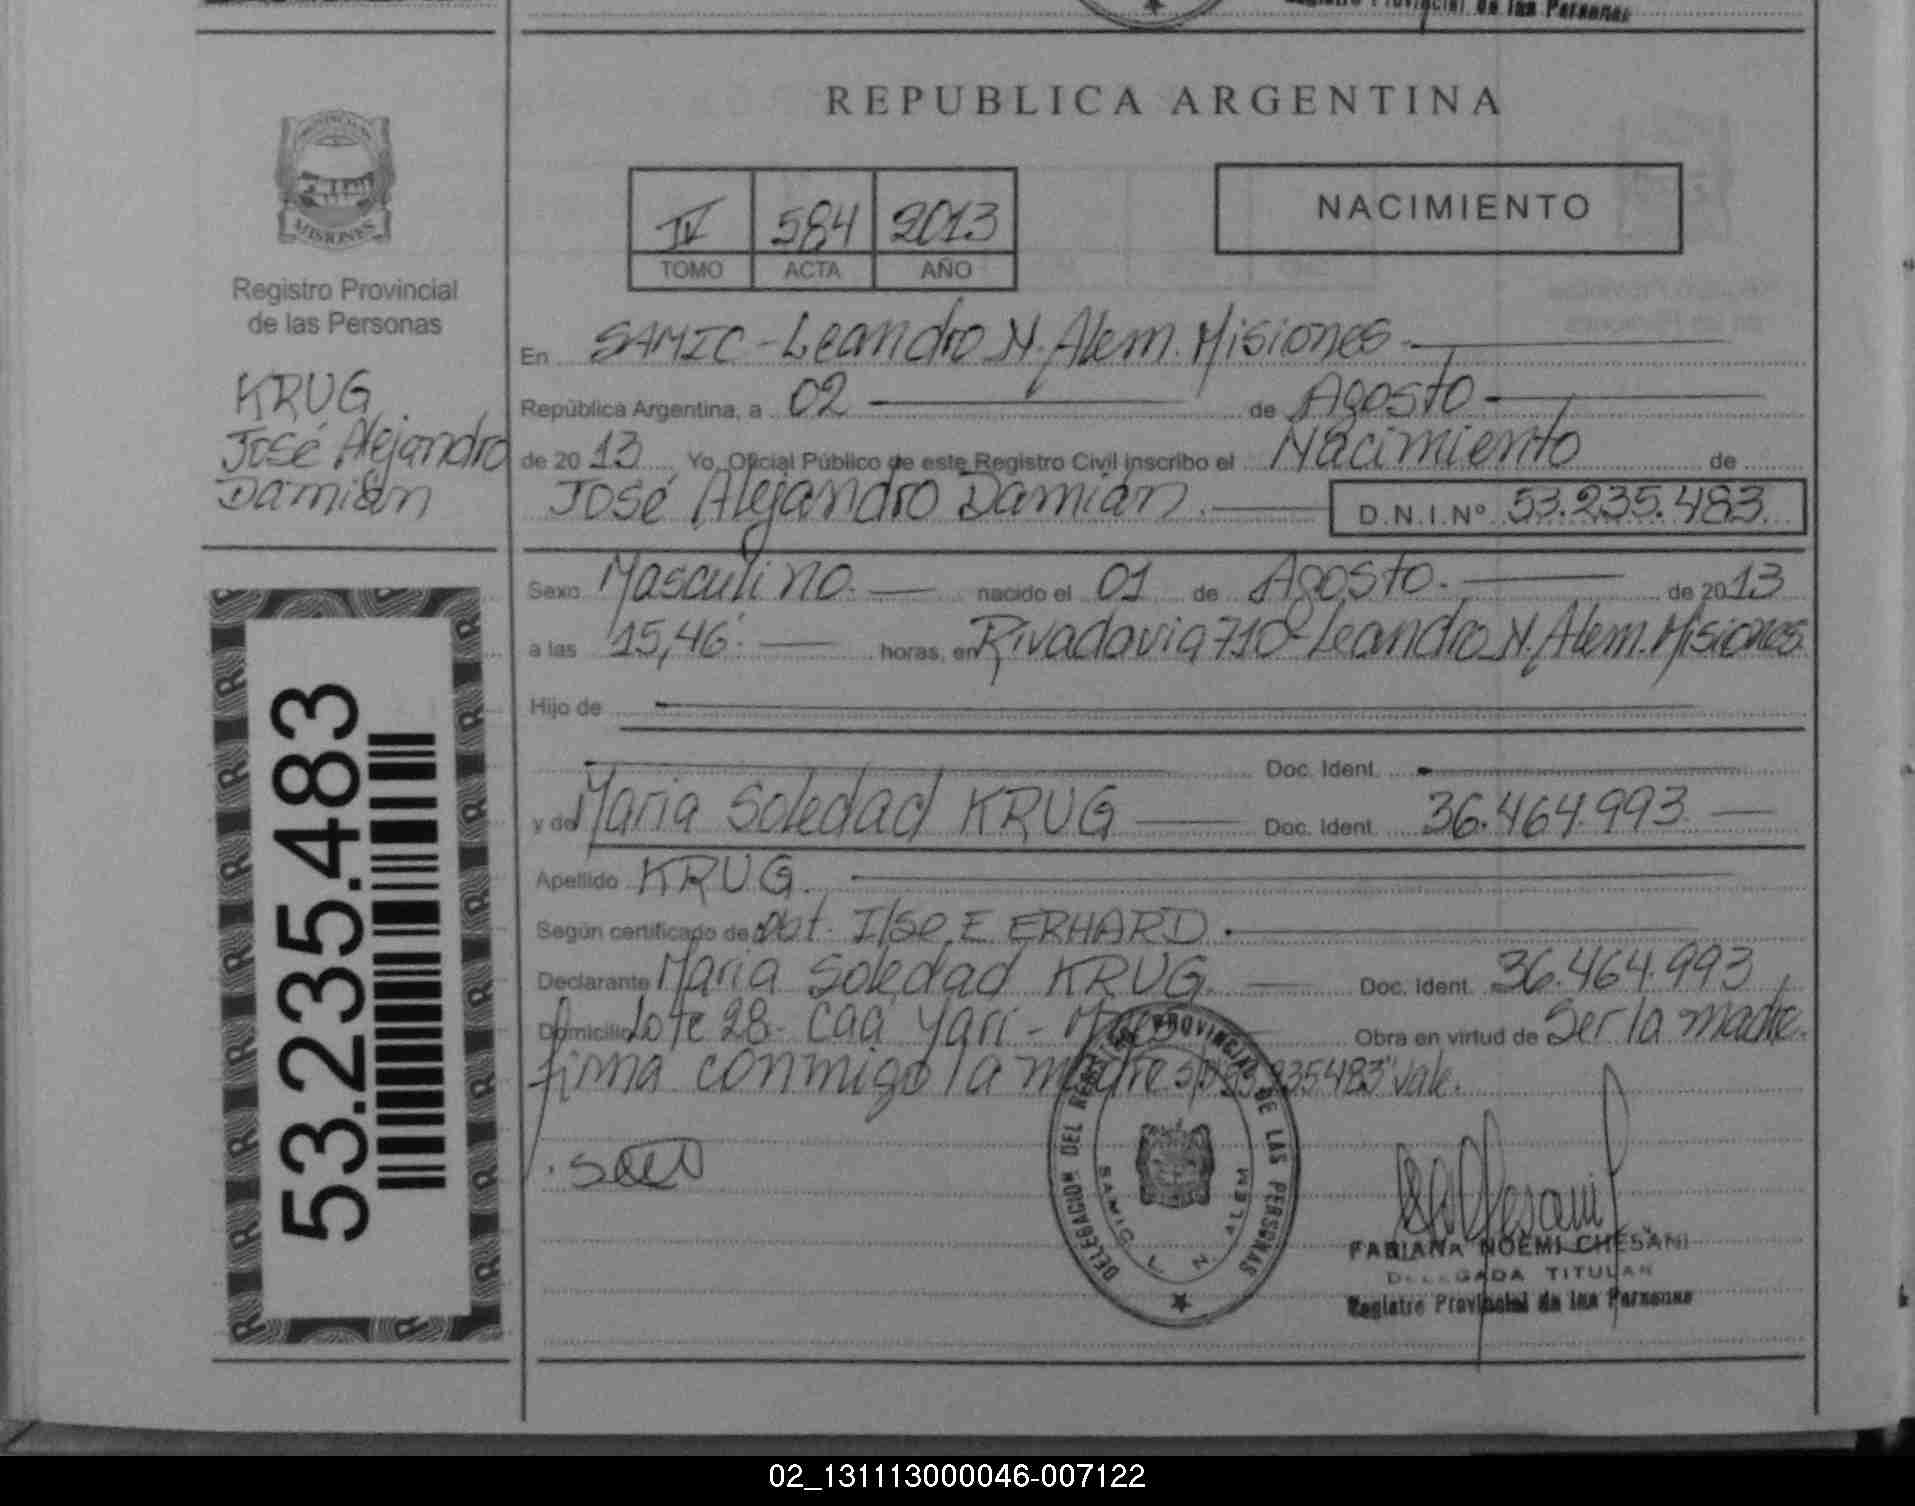 Registro Provincial de las Personas
REPUBLICA ARGENTINA
PROVINCIA DE
MISIONES
Registro Provincial
de las Personas
KRUG
José Alejandro
Damián
53.235.483
IV 584 2013
TOMO ACTA AÑO
NACIMIENTO
En SAMIC - Leandro N. Alem. Misiones.
República Argentina, a 02 de Agosto
de 2013 Yo, Oficial Público de este Registro Civil inscribo el Nacimiento de
José Alejandro Damián. D.N.I.Nº 53.235.483
Sexo Masculino. nacido el 01 de Agosto. de 2013
a las 15,46' horas, en Rivadavia 710 - Leandro N. Alem. Misiones.
Hijo de
Doc. Ident.
y de Maria Soledad KRUG Doc. Ident. 36.464.993
Apellido KRUG.
Según certificado de Obt. Ilse E ERHARD.
Declarante Maria Soledad KRUG. Doc. Ident. 36.464.993
Domicilio Lote 28 - Caá Yarí - Mnes Obra en virtud de Ser la madre.
firma conmigo la madre s/r "53235483" vale.
DELEGACION DEL REGISTRO PROVINCIAL DE LAS PERSONAS
SAMIC L. N. ALEM
FABIANA NOEMI CHESANI
DELEGADA TITULAR
Registro Provincial de las Personas
02_131113000046-007122